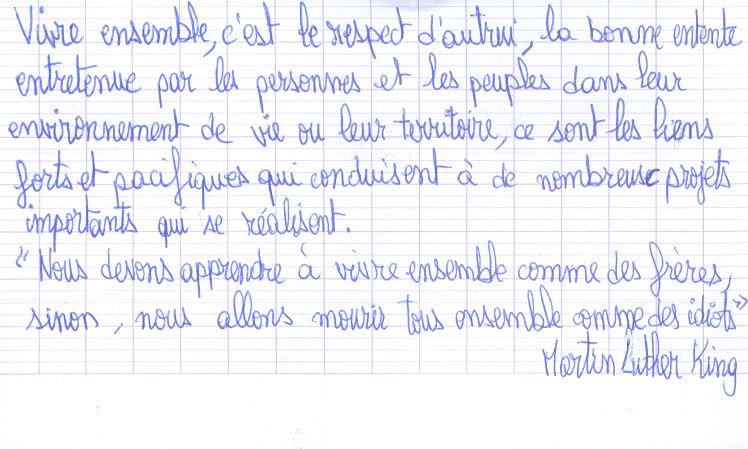 Vivre ensemble, c'est le respect d'autrui, la bonne entente
entretenue par les personnes et les peuples dans leur
environnement de vie ou leur territoire, ce sont les liens
forts et pacifiques qui conduisent à de nombreux projets
importants qui se réalisent.
"Nous devons apprendre à vivre ensemble comme des frères,
sinon, nous allons mourir tous ensemble comme des idiots"
Martin Luther King